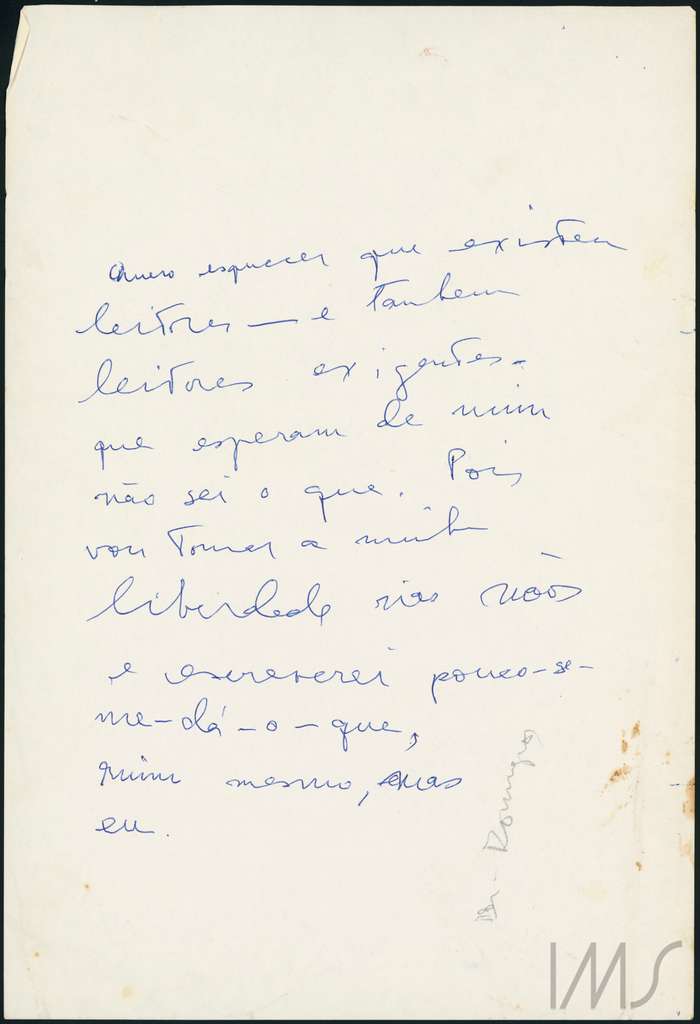 Quero esquecer que existem
leitores — e tambem
leitores exigentes -
que esperam de mim
não sei o que. Pois
vou tomar a minha
liberdade nas mãos
e escreverei pouco-se-
me-dá-o-que,
ruim mesmo, mas
eu.
IMS